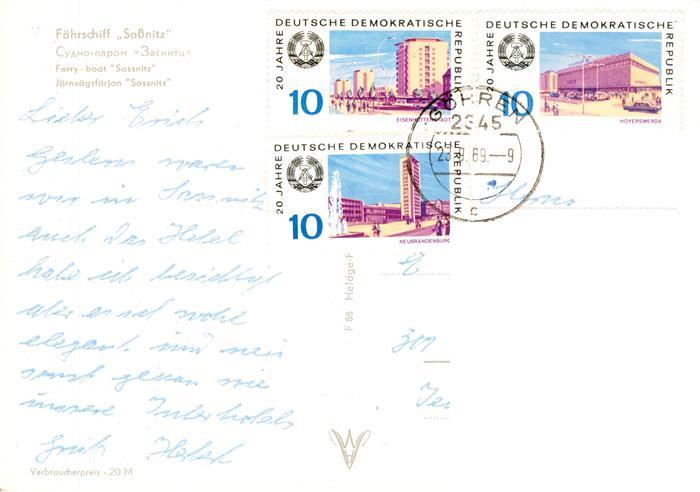 Fährschiff „Saßnitz"
Судно-паром »Засниц«
Ferry-boat "Sassnitz"
Järnvägsfärjan "Sassnitz"
Lieber Erich
Gestern waren
wir in Sassnitz
auch das Hotel
habe ich besichtigt
aber es ist wohl
elegant und nein
sonst genau wie
unsere Interhotels
Gruß
Verbraucherpreis -.20 M
20 JAHRE DEUTSCHE DEMOKRATISCHE REPUBLIK
10
EISENHÜTTENSTADT
20 JAHRE DEUTSCHE DEMOKRATISCHE REPUBLIK
10
HOYERSWERDA
20 JAHRE DEUTSCHE DEMOKRATISCHE REPUBLIK
10
NEUBRANDENBURG
GÖHREN
2345
23.9.69.—9
c
F 86 Heldge-F